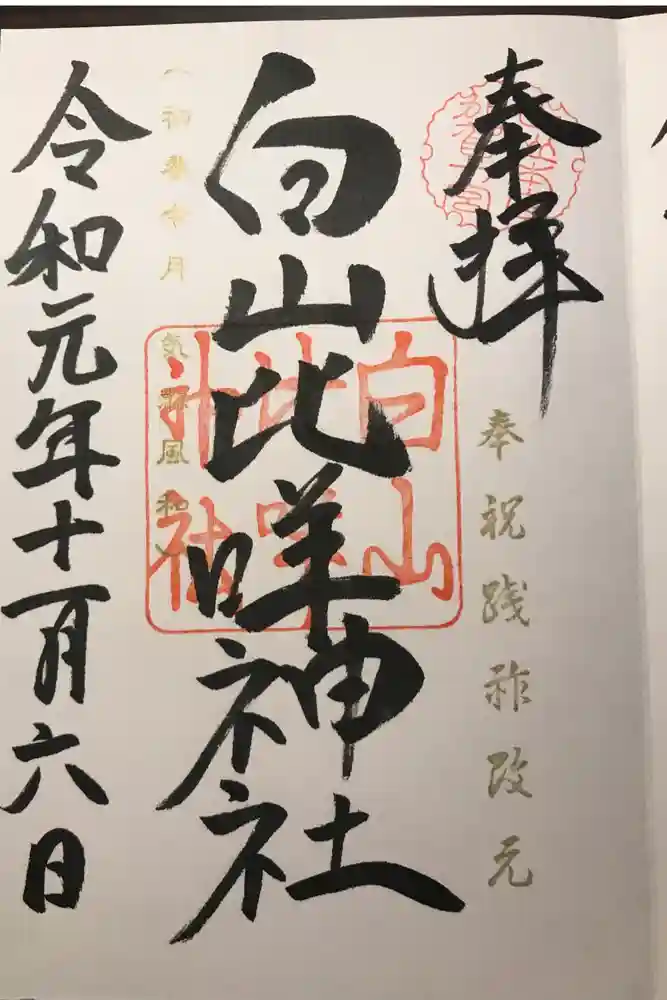 奉拝
奉祝践祚改元
白山比咩神社
白山
比咩
神社
初春令月 気淑風和
令和元年十一月六日